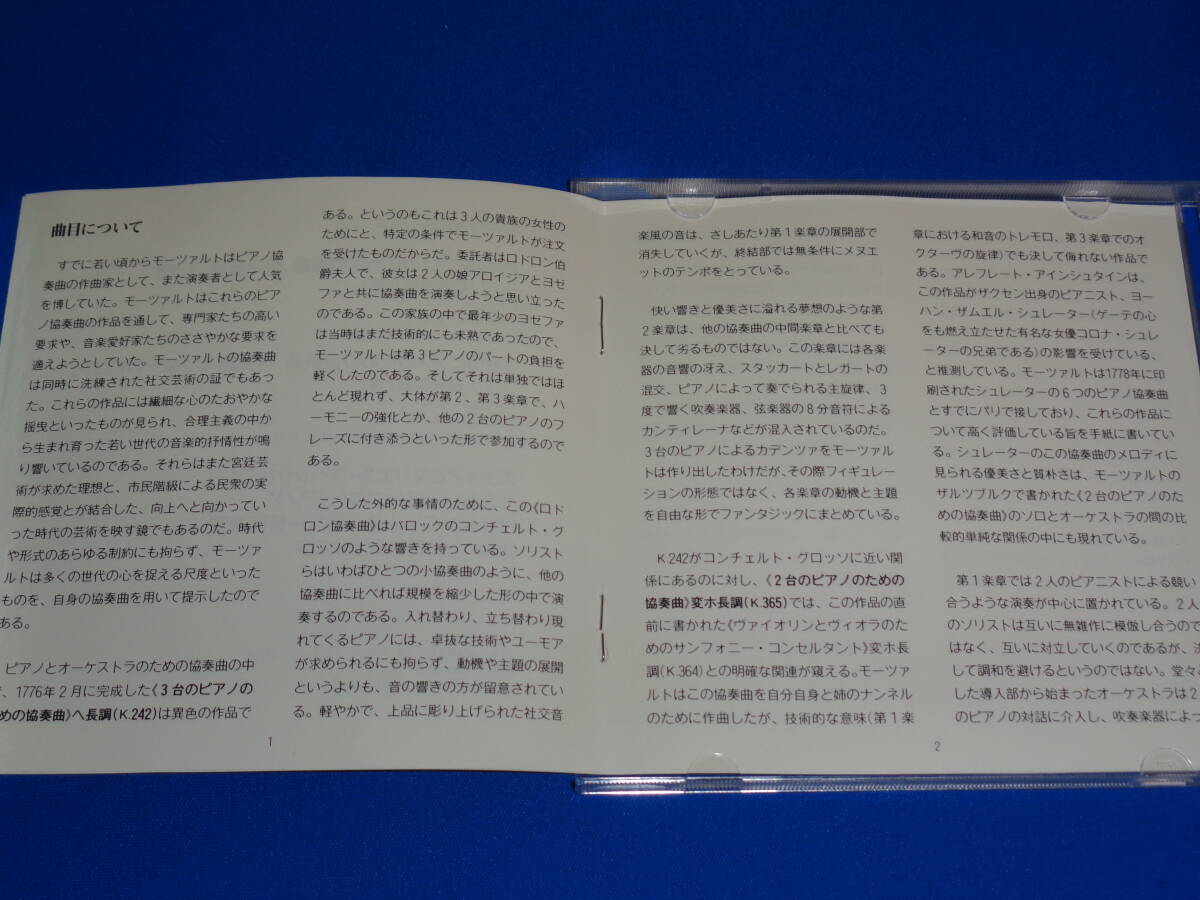 曲目について
すでに若い頃からモーツァルトはピアノ協
奏曲の作曲家として、また演奏者として人気
を博していた。モーツァルトはこれらのピア
ノ協奏曲の作品を通して、専門家たちの高い
要求や、音楽愛好家たちのささやかな要求を
適えようとしていた。モーツァルトの協奏曲
は同時に洗練された社交芸術の証でもあっ
た。これらの作品には繊細な心のたおやかな
揺曳といったものが見られ、合理主義の中か
ら生まれ育った若い世代の音楽的抒情性が鳴
り響いているのである。それらはまた宮廷芸
術が求めた理想と、市民階級による民衆の実
際的感覚とが結合した、向上へと向かってい
った時代の芸術を映す鏡でもあるのだ。時代
や形式のあらゆる制約にも拘らず、モーツァ
ルトは多くの世代の心を捉える尺度といった
ものを、自身の協奏曲を用いて提示したので
ある。
ピアノとオーケストラのための協奏曲の中
、1776年2月に完成した《3台のピアノの
めの協奏曲》ヘ長調(K.242)は異色の作品で
ある。というのもこれは3人の貴族の女性の
ためにと、特定の条件でモーツァルトが注文
を受けたものだからだ。委託者はロドロン伯
爵夫人で、彼女は2人の娘アロイジアとヨゼ
ファと共に協奏曲を演奏しようと思い立った
のである。この家族の中で最年少のヨゼファ
は当時はまだ技術的にも未熟であったので、
モーツァルトは第3ピアノのパートの負担を
軽くしたのである。そしてそれは単独ではほ
とんど現れず、大体が第2、第3楽章で、ハ
ーモニーの強化とか、他の2台のピアノのフ
レーズに付き添うといった形で参加するので
ある。
こうした外的な事情のために、この《ロド
ロン協奏曲》はバロックのコンチェルト・グ
ロッソのような響きを持っている。ソリスト
らはいわばひとつの小協奏曲のように、他の
協奏曲に比べれば規模を縮少した形の中で演
奏するのである。入れ替わり、立ち替わり現
れてくるピアノには、卓抜な技術やユーモア
が求められるにも拘らず、動機や主題の展開
というよりも、音の響きの方が留意されてい
る。軽やかで、上品に彫り上げられた社交音
1
楽風の音は、さしあたり第1楽章の展開部で
消失していくが、終結部では無条件にメヌエ
ットのテンポをとっている。
快い響きと優美さに溢れる夢想のような第
2楽章は、他の協奏曲の中間楽章と比べても
決して劣るものではない。この楽章には各楽
器の音響の冴え、スタッカートとレガートの
混交、ピアノによって奏でられる主旋律、3
度で響く吹奏楽器、弦楽器の8分音符による
カンティレーナなどが混入されているのだ。
3台のピアノによるカデンツァをモーツァル
トは作り出したわけだが、その際フィギュレー
ションの形態ではなく、各楽章の動機と主題
を自由な形でファンタジックにまとめている。
K.242がコンチェルト・グロッソに近い関
係にあるのに対し、《2台のピアノのための
協奏曲》変ホ長調(K.365)では、この作品の直
前に書かれた《ヴァイオリンとヴィオラのた
めのサンフォニー・コンセルタント》変ホ長
調(K.364)との明確な関連が窺える。モーツァ
ルトはこの協奏曲を自分自身と姉のナンネル
のために作曲したが、技術的な意味(第1楽
章における和音のトレモロ、第3楽章でのオ
クターヴの旋律)でも決して侮れない作品で
ある。アレフレート・アインシュタインは、
この作品がザクセン出身のピアニスト、ヨー
ハン・ザムエル・シュレーター(ゲーテの心
をも燃え立たせた有名な女優コロナ・シュレ
ーターの兄弟である)の影響を受けている、
と推測している。モーツァルトは1778年に印
刷されたシュレーターの6つのピアノ協奏曲
とすでにパリで接しており、これらの作品に
ついて高く評価している旨を手紙に書いてい
る。シュレーターのこの協奏曲のメロディに
見られる優美さと質朴さは、モーツァルトの
ザルツブルクで書かれた《2台のピアノのた
めの協奏曲》のソロとオーケストラの間の比
較的単純な関係の中にも現れている。
第1楽章では2人のピアニストによる競い
合うような演奏が中心に置かれている。2人
のソリストは互いに無雑作に模倣し合うので
はなく、互いに対立していくのであるが、決
して調和を避けるというのではない。堂々と
した導入部から始まったオーケストラは2
のピアノの対話に介入し、吹奏楽器によっ
2